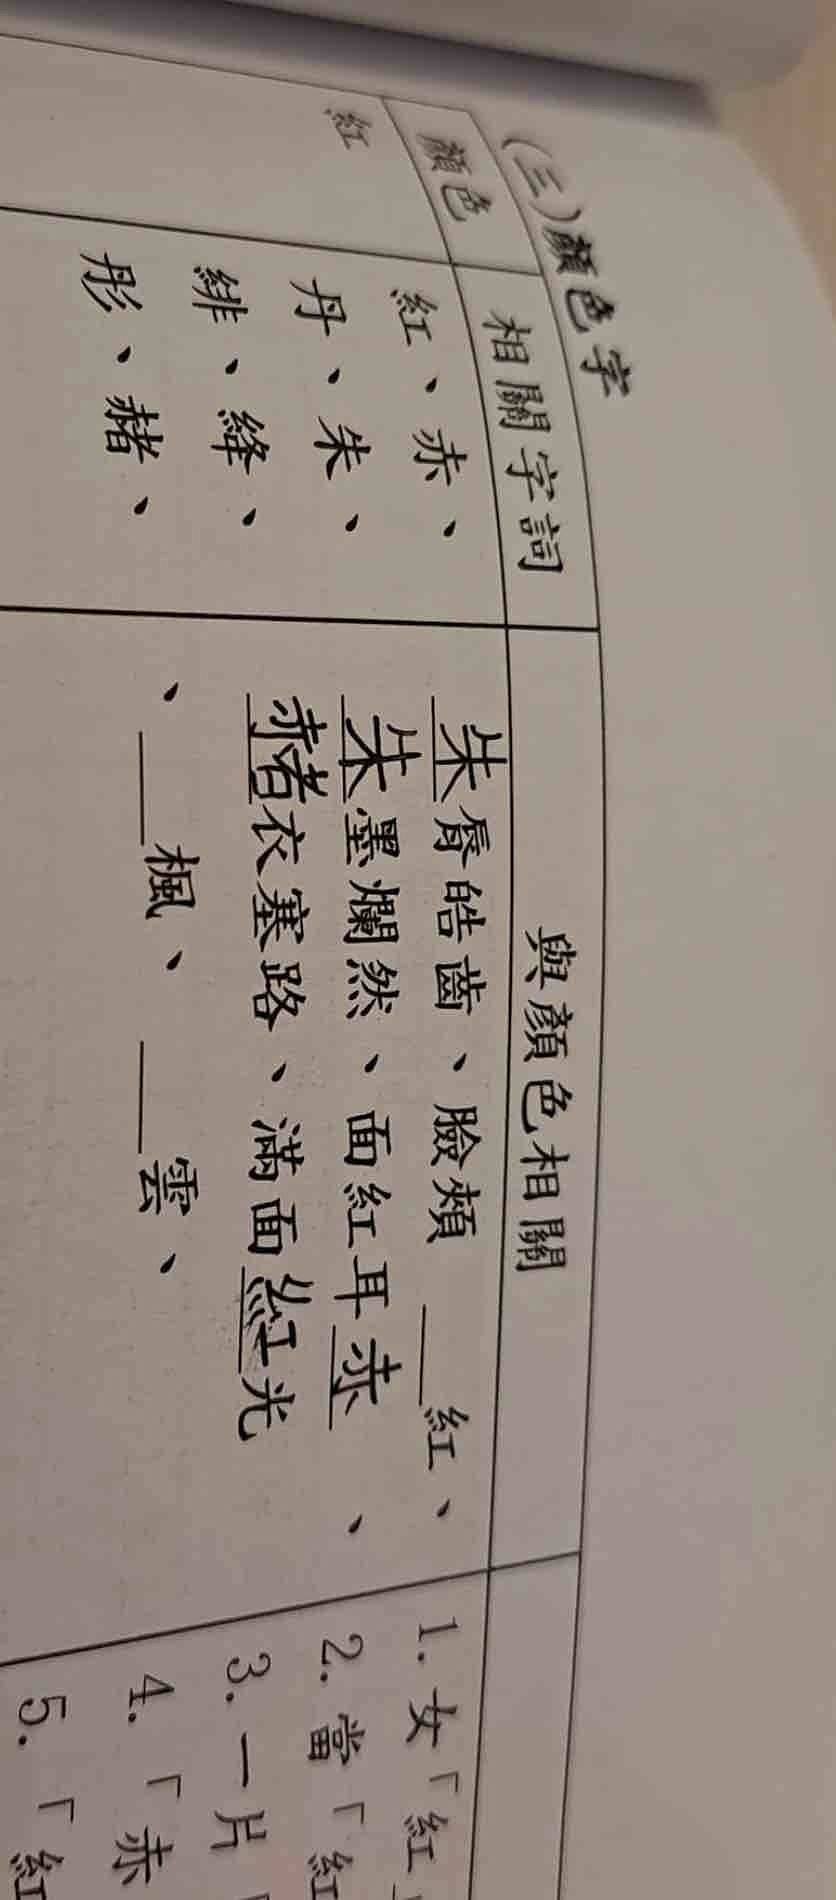 (三)顏色字
顏色 相關字詞 與顏色相關
紅 紅、赤、 朱脣皓齒、臉頰___紅、 1. 女「紅」
丹、朱、 朱墨爛然、面紅耳赤、 2. 當「紅
緋、絳、 赭衣塞路、滿面紅光 3. 一片「
彤、赭、 、___楓、___雲、 4. 「赤
5. 「紅